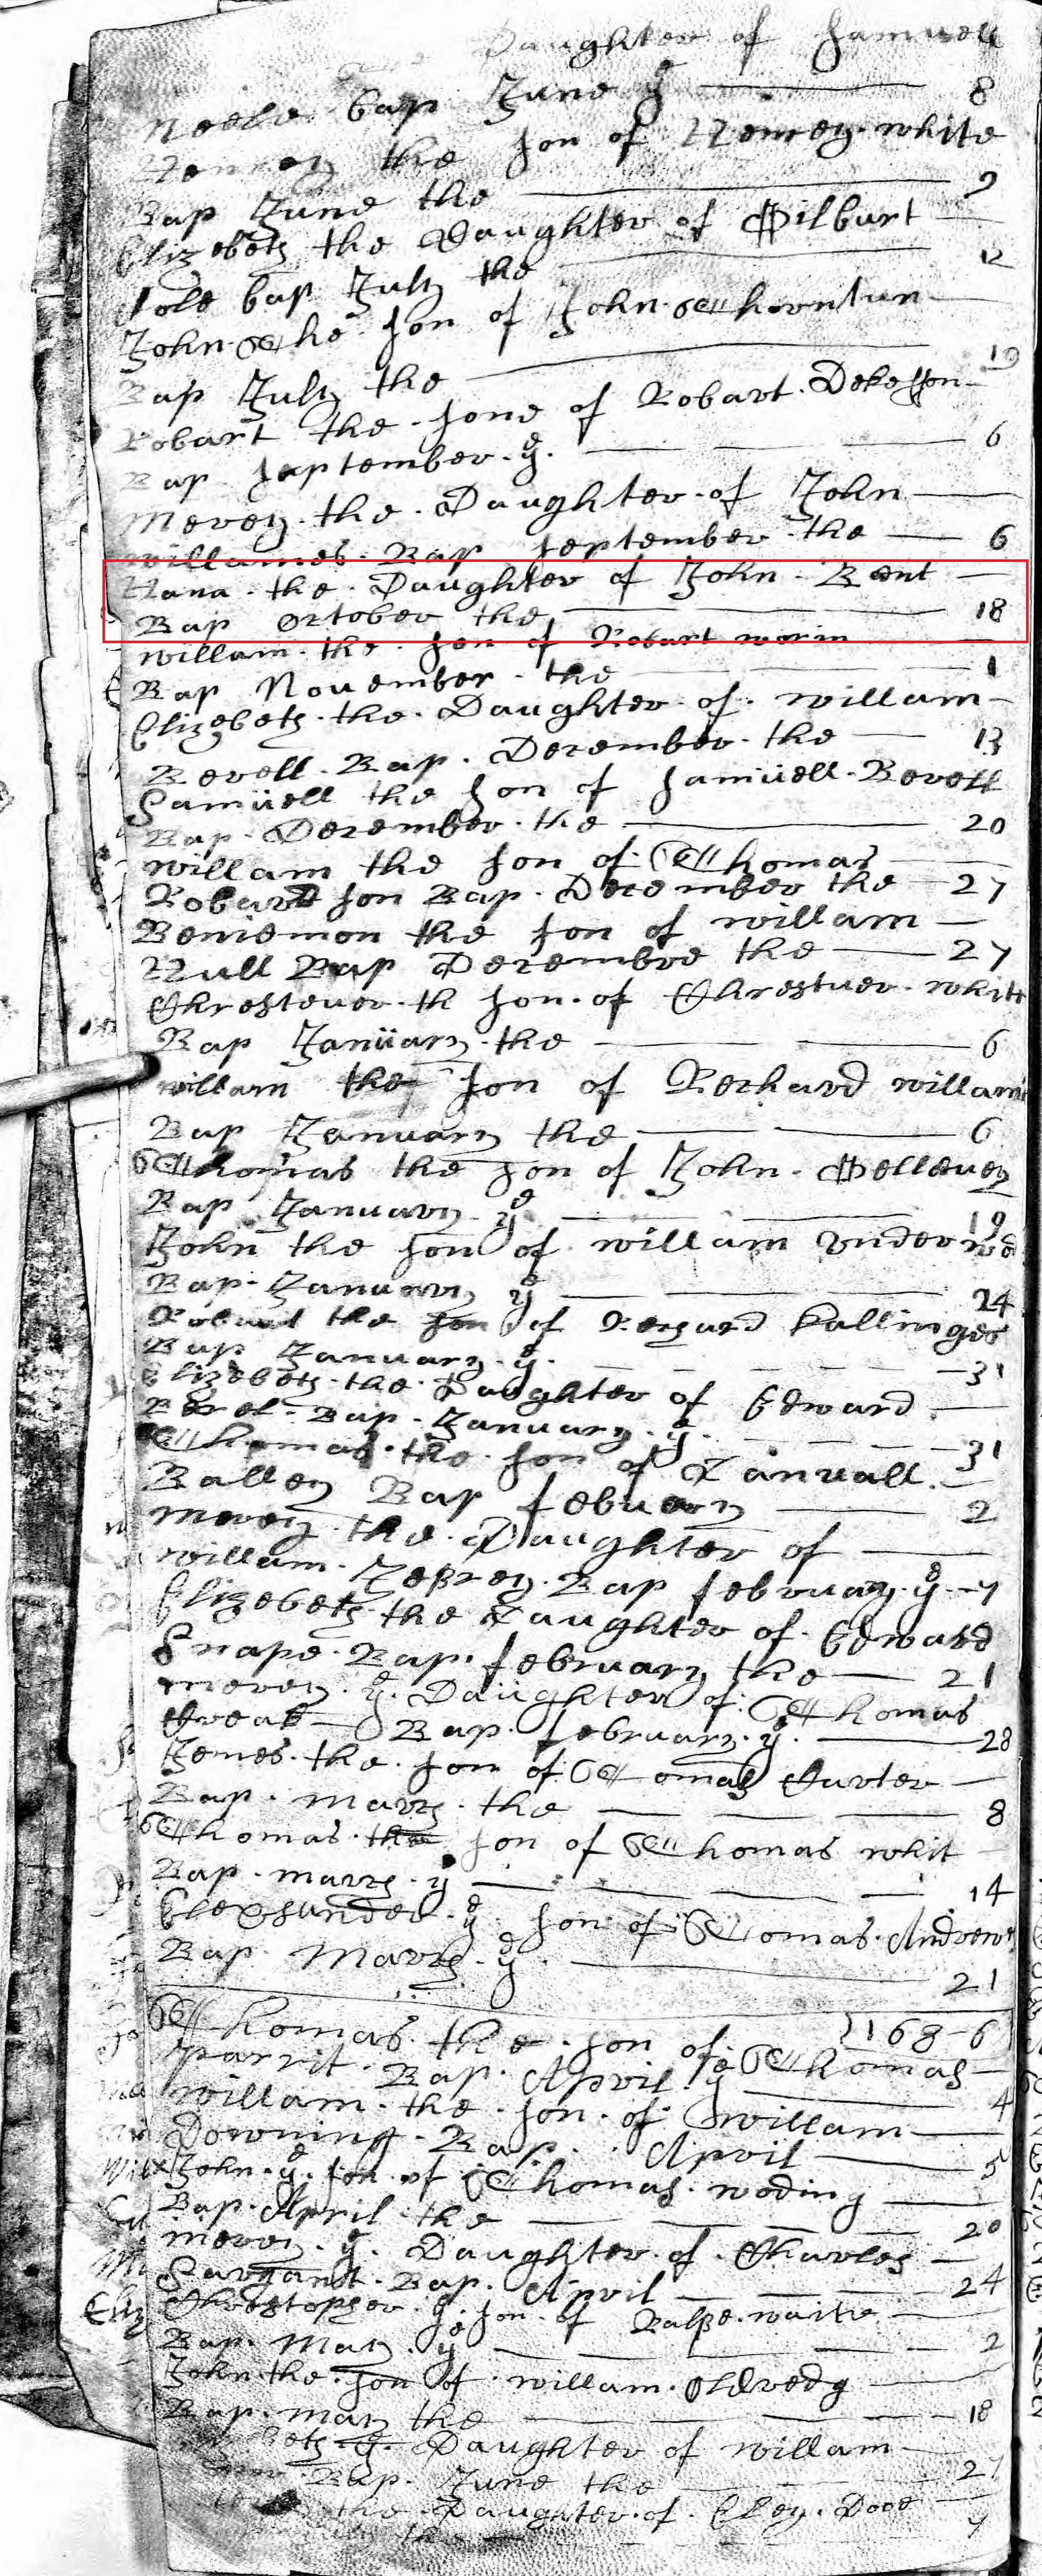 Daughter of Samuell
bap June ye 8
Henrey the son of Henrey white
Bap June the 9
Elizebeth the Daughter of Gilburt
bap July the 12
John The son of John Thorntun
Bap July the 19
Robart the sone of Robart Dekesson
Bap September ye 6
Merey the Daughter of John
willames Bap September the 6
Hana the Daughter of John Bent
Bap October the 18
willam the son of Robart
Bap November the 1
Elizebeth the Daughter of willam
Revell Bap December the 13
Samuell the son of Samuell Revell
Bap December the 20
william the son of Thomas
Robard son Bap December the 27
Beniemon the son of willam
Hull Bap Decembre the 27
Chrestever th son of Chrestuer white
Bap January the 6
willam the son of Rechard willam
Bap January the 6
Thomas the son of John
Bap January ye 19
John the son of william underwod
Bap January ye 24
the son of kallinges
Bap January ye 31
Elizebeth the Daughter of Edward
Bap January ye 31
Thomas the son of
Balley Bap february 2
Merey the Daughter of
willam Bap february ye 7
Elizebeth the Daughter of Edward
Snape Bap february the 21
merey ye Daughter of Thomas
Bap february ye 28
Jemes the son of Tomas Charter
Bap march the 8
Thomas the son of Thomas whit
Bap march ye 14
Elexsander ye son of Tomas Andrews
Bap March ye 21
1686
Thomas the son of Thomas
parrit Bap April ye 4
william the son of william
Downing Bap April 5
John ye son of Thomas woding
Bap April the 20
merey ye Daughter of Charles
Sargant Bap April 24
Chrestopher ye son of Ralpe waitie
Bap May ye 2
John the son of willam oldredg
Bap May the 18
ye Daughter of willam
Bap June the 27
the Daughter of Eley Dooe
the 4